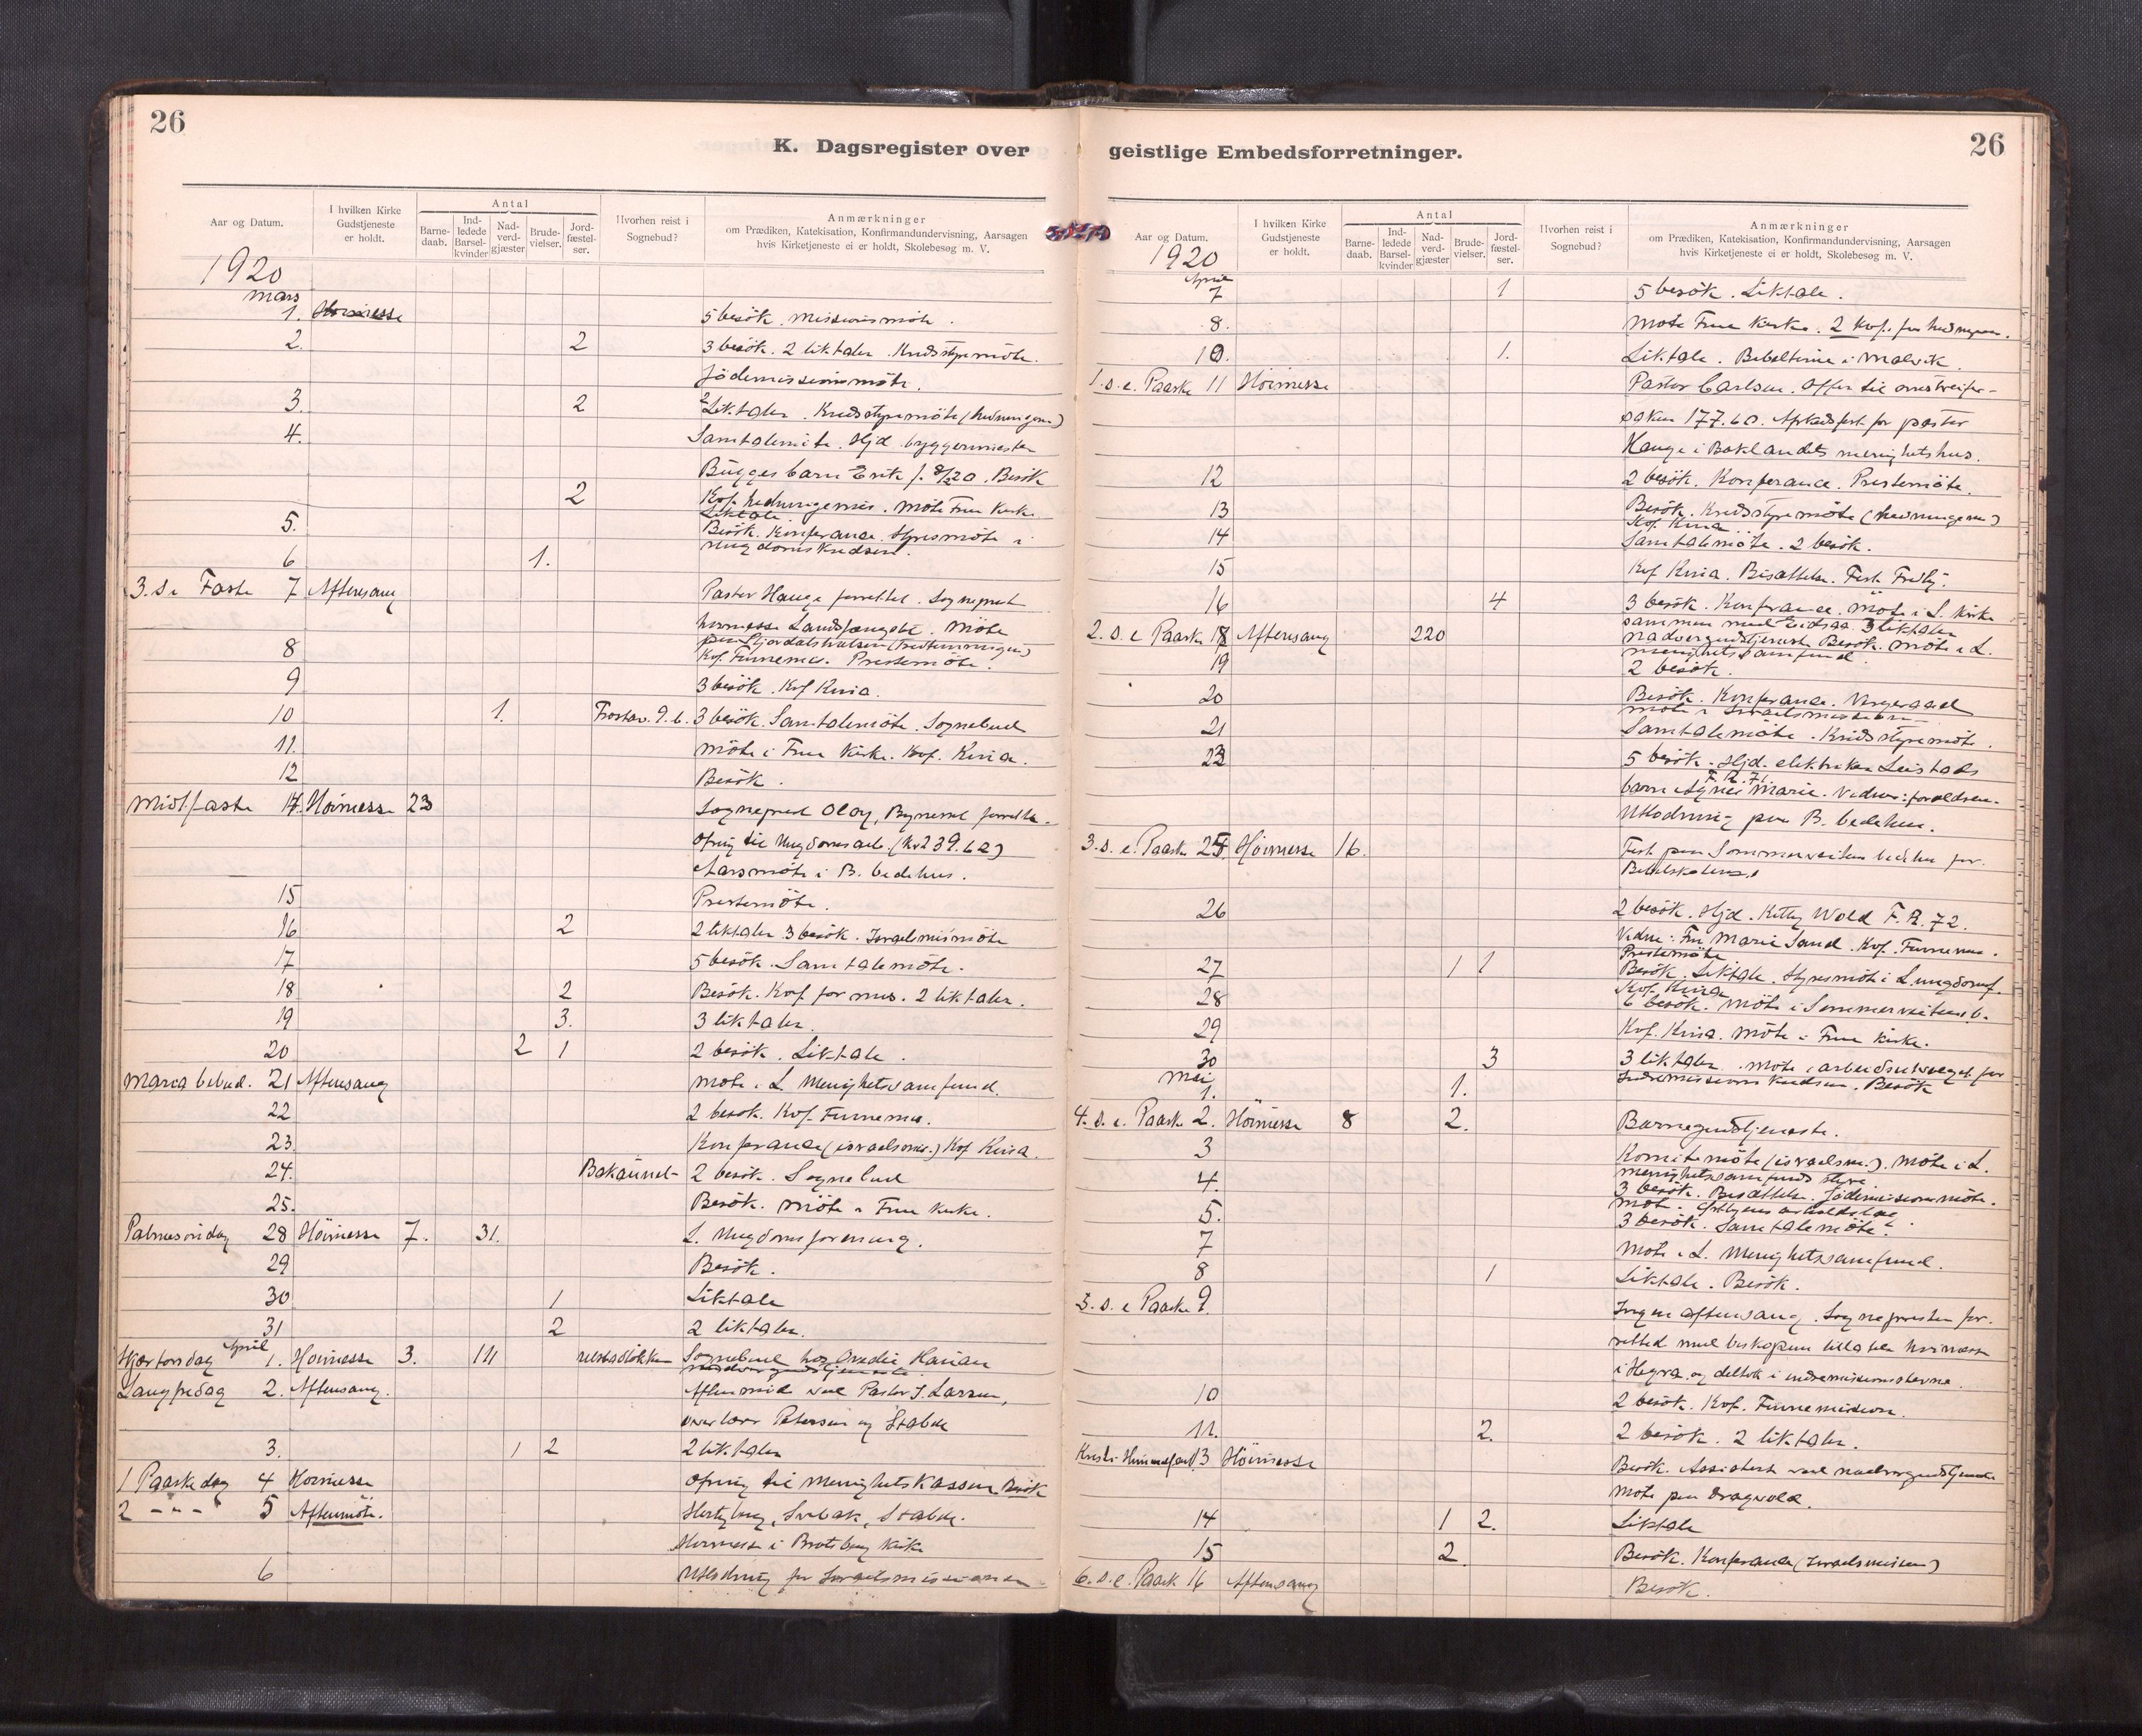 26
K. Dagsregister over
Aar og Datum.
I hvilken Kirke Gudstjeneste er holdt.
Antal
Barne-daab.
Ind-ledede Barsel-kvinder
Nad-verd-gjæster
Brude-vielser.
Jord-fæstel-ser.
Hvorhen reist i Sognebud?
Anmærkninger
om Prædiken, Katekisation, Konfirmandundervisning, Aarsagen
hvis Kirketjeneste ei er holdt, Skolebesøg m. V.
1920
mars
1. Høimesse 5 besök. Missionsmöte.
2. 2 3 besök. 2 liktaler. Kredsstyremöte.
Jödemissionsmöte.
3. 2 2 Liktaler. Kredsstyremöte (hedningem)
4. Samtalemöte. Hjd. byggermester
Bügges barn f. 8/2 20. Besök
2 Kof. hedningemis. Möte Frue Kirke.
Liktale.
5. Besök. Konferance. Styresmöte i
ungdomskredsen.
6 1.
3. s. e Faste 7 Aftensang Pastor Hauge forrettet. Sogneprest
Möte
8 Kof. Finnemis. Prestemöte.
9 3 besök. Kof Kina.
10 1. 3 besök. Samtalemöte. Sognebud
11. Möte i Frue Kirke. Kof. Kina.
12 Besök.
Midtfaste 14. Höimesse 23 Sogneprest Olay, Bynesset
Ofring til Ungdomsarb. (kr 239.62)
Aarsmöte i B. bedehus.
15 Prestemöte.
16 2 2 liktaler 3 besök. Israelsmismöte
17 5 besök. Samtalemöte.
18 2 Besök. Kof for mis. 2 liktaler.
19 3. 3 liktaler.
20 2 1 2 besök. Liktale.
Maria bebud. 21 Aftensang Möte i L. Menighetssamfund.
22 2 besök. Kof. Finnemis.
23. Konferance (israelsmis.) Kof Kina.
24. Bakaunet 2 besök. Sognebud
25. Besök. Möte i Frue Kirke.
Palmesöndag 28 Höimesse 7. 31. L. Ungdomsforening.
29 Besök.
30 1 Liktale
31 2 2 liktaler.
April
Skjærtorsdag 1. Höimesse 3. Sognebud hos
Langfredag 2. Aftensang. Aftenmöte ved Pastor J. Larsen,
Petersen og Stabde
3. 1 2 2 liktaler
1 Paaskedag 4 Höimesse Ofring til Menighetskassen Besök
2 - - - 5 Aftenmöte.
Höimesse i Bratsberg Kirke
6 Utlodning for Israelsmissionen
3 2
26
geistlige Embedsforretninger.
Aar og Datum.
I hvilken Kirke Gudstjeneste er holdt.
Antal
Barne-daab.
Ind-ledede Barsel-kvinder
Nad-verd-gjæster
Brude-vielser.
Jord-fæstel-ser.
Hvorhen reist i Sognebud?
Anmærkninger
om Prædiken, Katekisation, Konfirmandundervisning, Aarsagen
hvis Kirketjeneste ei er holdt, Skolebesøg m. V.
1920
April
7 1 5 besök. Liktale.
8. Möte Frue Kirke. 2 Kof. for hedningem.
10. 1. Liktale. Bibeltime i Malvik
1. s. e. Paaske 11 Höimesse Pastor Carlsen. Offer til
saken 177.60. Afskedsfest for pastor
Hauge i Baklandets menighetshus.
12 2 besök. Konferance. Prestemöte.
13 Besök. Kredsstyremöte (hedningem)
Kof. Kina
14 Samtalemöte. 2 besök.
15 Kof Kina. Bisættelse. Fest
16 4 3 besök. Konferance. Möte i L. Kirke
sammen med 3 liktaler
2. s. e Paaske 18 Aftensang 220 Nadvergudstjeneste. Besök. Möte i L.
menighetssamfund.
19 2 besök.
20 Besök. Konferance. Vergeraad
möte i Israelsmissionen
21 Samtalemöte. Kredsstyremöte.
23 5 besök. Hjd. elektriker Leistads
F. R. 71
barn Agnes Marie. Vidner: foreldrene.
Utlodning paa B. bedehus.
3. s. e. Paaske 25 Höimesse 16. Fest paa Sommerveiten bedehus for
26 2 besök. Hjd. Kitty Wold F. R. 72.
Vidne: Fru Marie Sand. Kof. Finnemis.
Prestemöte
27 1 1 Besök. Liktale. Styresmöte i L ungdomsf.
Kof. Kina
28 6 besök. Möte i Sommerveiten b.
29 Kof. Kina. Möte i Frue Kirke.
30 3 3 liktaler. Möte i arbeidsutvalget for
Indremissions Kredsen. Besök
Mai
1. 1.
4. s. e. Paaske 2. Höimesse 8 2. Barnegudstjeneste.
3 Komitemöte (israelsm.). Möte i L.
menighetssamfunds styre
4. 3 besök. Bisættelse. Jödemissionsmöte.
5. 3 besök. Samtalemöte.
7 Möte i L. Menighetssamfund.
8 1 Liktale. Besök.
5. s. e Paaske 9. Ingen aftensang. Sognepresten for-
rettet med biskopens tillatelse höimesse
i Hegra og deltok i indremissionsstevne.
10 2 besök. Kof. Finnemission.
11. 2. 2 besök. 2 liktaler.
Kristi Himmelfart 13 Höimesse Besök. Assistert ved nadvergudstjeneste
Möte paa Dragvold.
14 1 2. Liktale
15 2. Besök. Konferance (Israelsmission)
6. s. e. Paaske 16 Aftensang Besök.